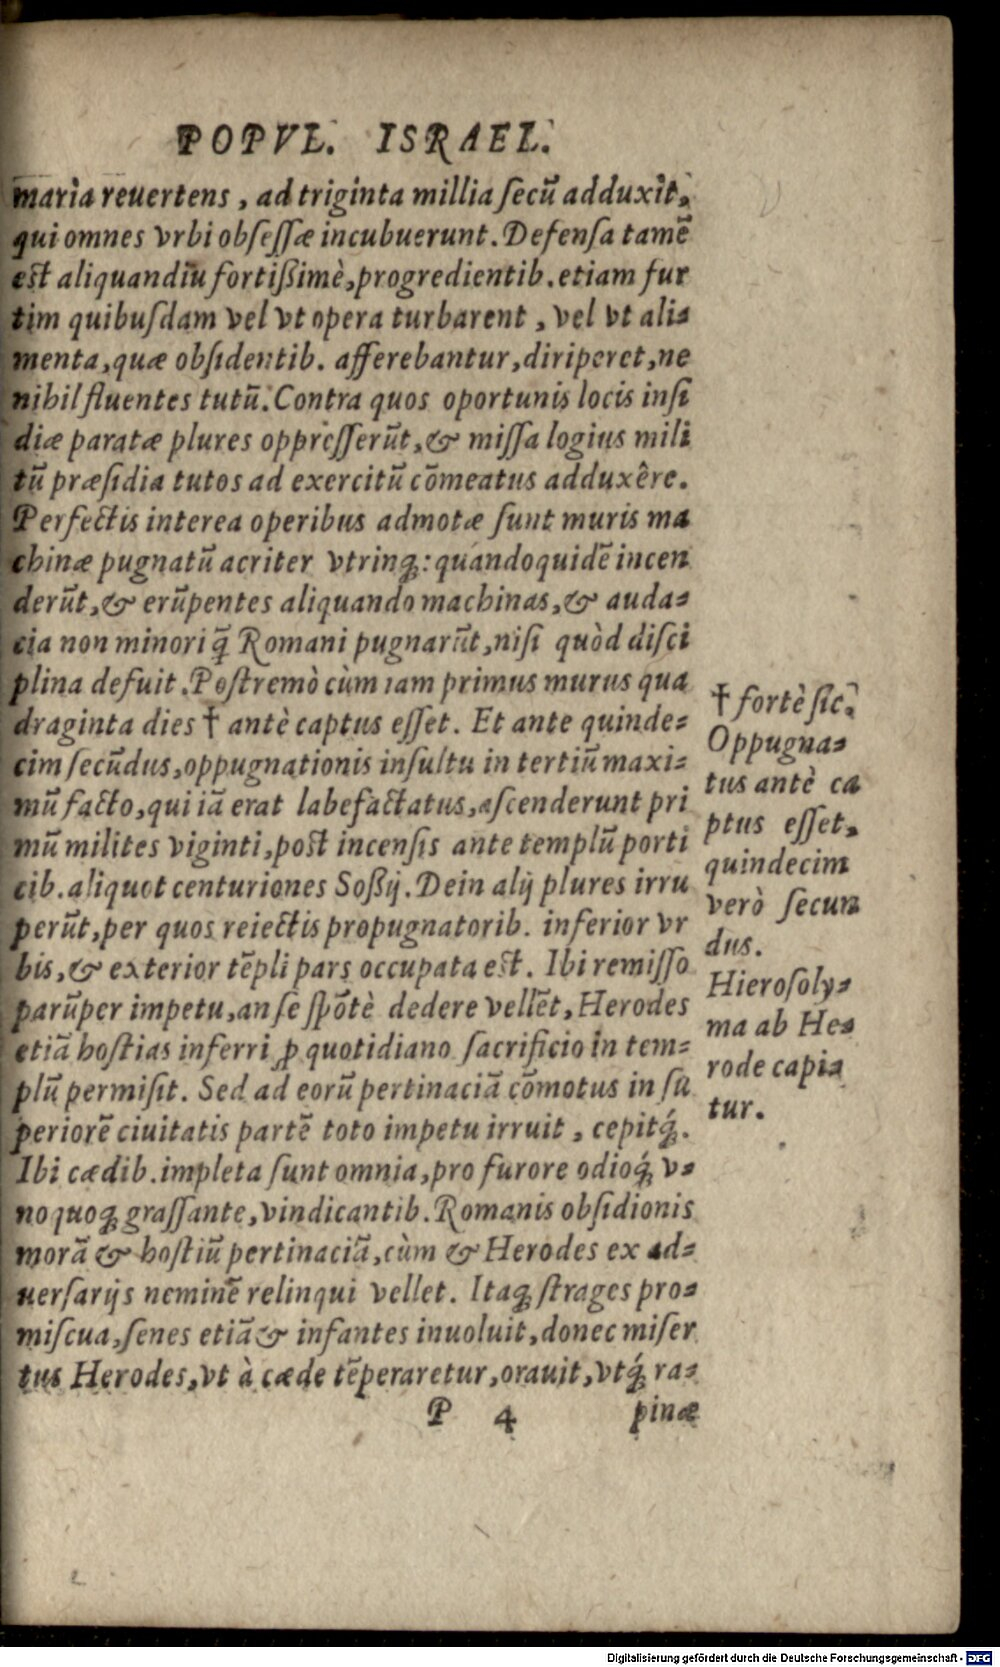 POPVL. ISRAEL.
maria reuertens, ad triginta millia ſecū adduxit,
qui omnes vrbi obſeſſæ incubuerunt. Defenſa tamē
eſt aliquandiu fortißimè, progredientib. etiam fur
tim quibuſdam vel vt opera turbarent, vel vt ali⸗
menta, quæ obſidentib. afferebantur, diriperet, ne
nihil fluentes tutū. Contra quos oportunis locis inſi
diæ paratæ plures oppreſſerūt, & miſſa lōgius mili
tū præſidia tutos ad exercitū cōmeatus adduxêre.
Perfectis interea operibus admotæ ſunt muris ma
chinæ pugnatū acriter vtrinq;: quandoquidē incen
derūt, & erūpentes aliquando machinas, & auda⸗
cia non minori q̄ Romani pugnarūt, niſi quòd diſci
plina defuit. Poſtremò cùm iam primus murus qua
draginta dies † antè captus eſſet. Et ante quinde⸗
cim ſecūdus, oppugnationis inſultu in tertiū maxi⸗
mū facto, qui iā erat labefactatus, aſcenderunt pri
mū milites viginti, poſt incenſis ante templū porti
cib. aliquot centuriones Soßij. Dein alij plures irru
perūt, per quos reiectis propugnatorib. inferior vr
bis, & exterior tēpli pars occupata eſt. Ibi remiſſo
parūper impetu, an ſe ſpōtè dedere vellēt, Herodes
etiā hoſtias inferri ꝓ quotidiano ſacrificio in tem⸗
plū permiſit. Sed ad eorū pertinaciā cōmotus in ſu
periorē ciuitatis partē toto impetu irruit, cepitq́;.
Ibi cædib. impleta ſunt omnia, pro furore odioq́; v⸗
no quoq; graſſante, vindicantib. Romanis obſidionis
morā & hoſtiū pertinaciā, cùm & Herodes ex ad⸗
uerſarijs neminē relinqui vellet. Itaq; ſtrages pro⸗
miſcua, ſenes etiā & infantes inuoluit, donec miſer
tus Herodes, vt à cæde tēperaretur, orauit, vtq́; ra⸗
P 4 pinæ
† fortè ſic.
Oppugna⸗
tus antè ca
ptus eſſet,
quindecim
verò ſecun
dus.
Hieroſoly⸗
ma ab He⸗
rode capi⸗
tur.
Digitalisierung gefördert durch die Deutsche Forschungsgemeinschaft - DFG